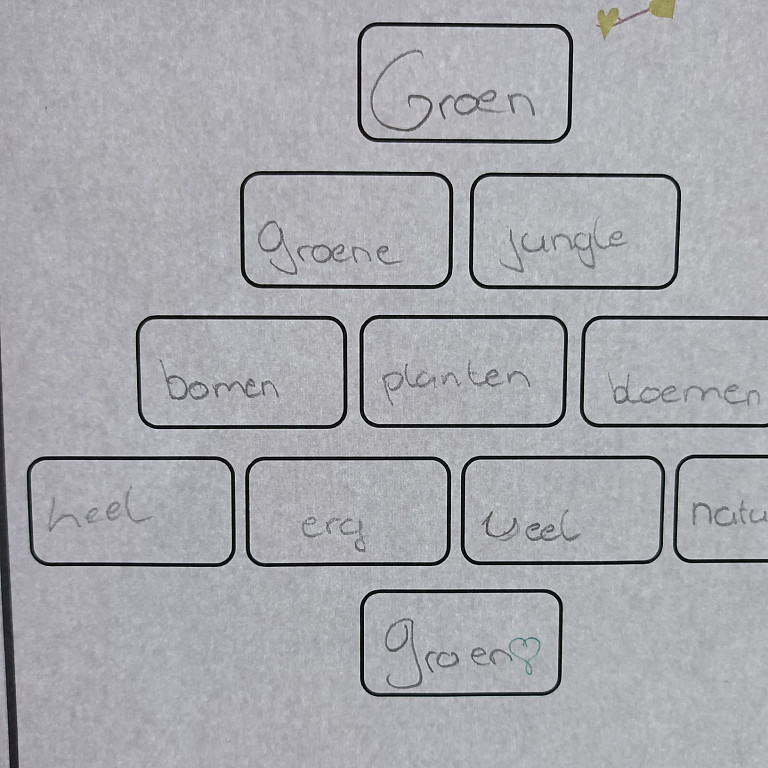 Groen
groene jungle
bomen planten bloemen
heel erg veel natu
groen